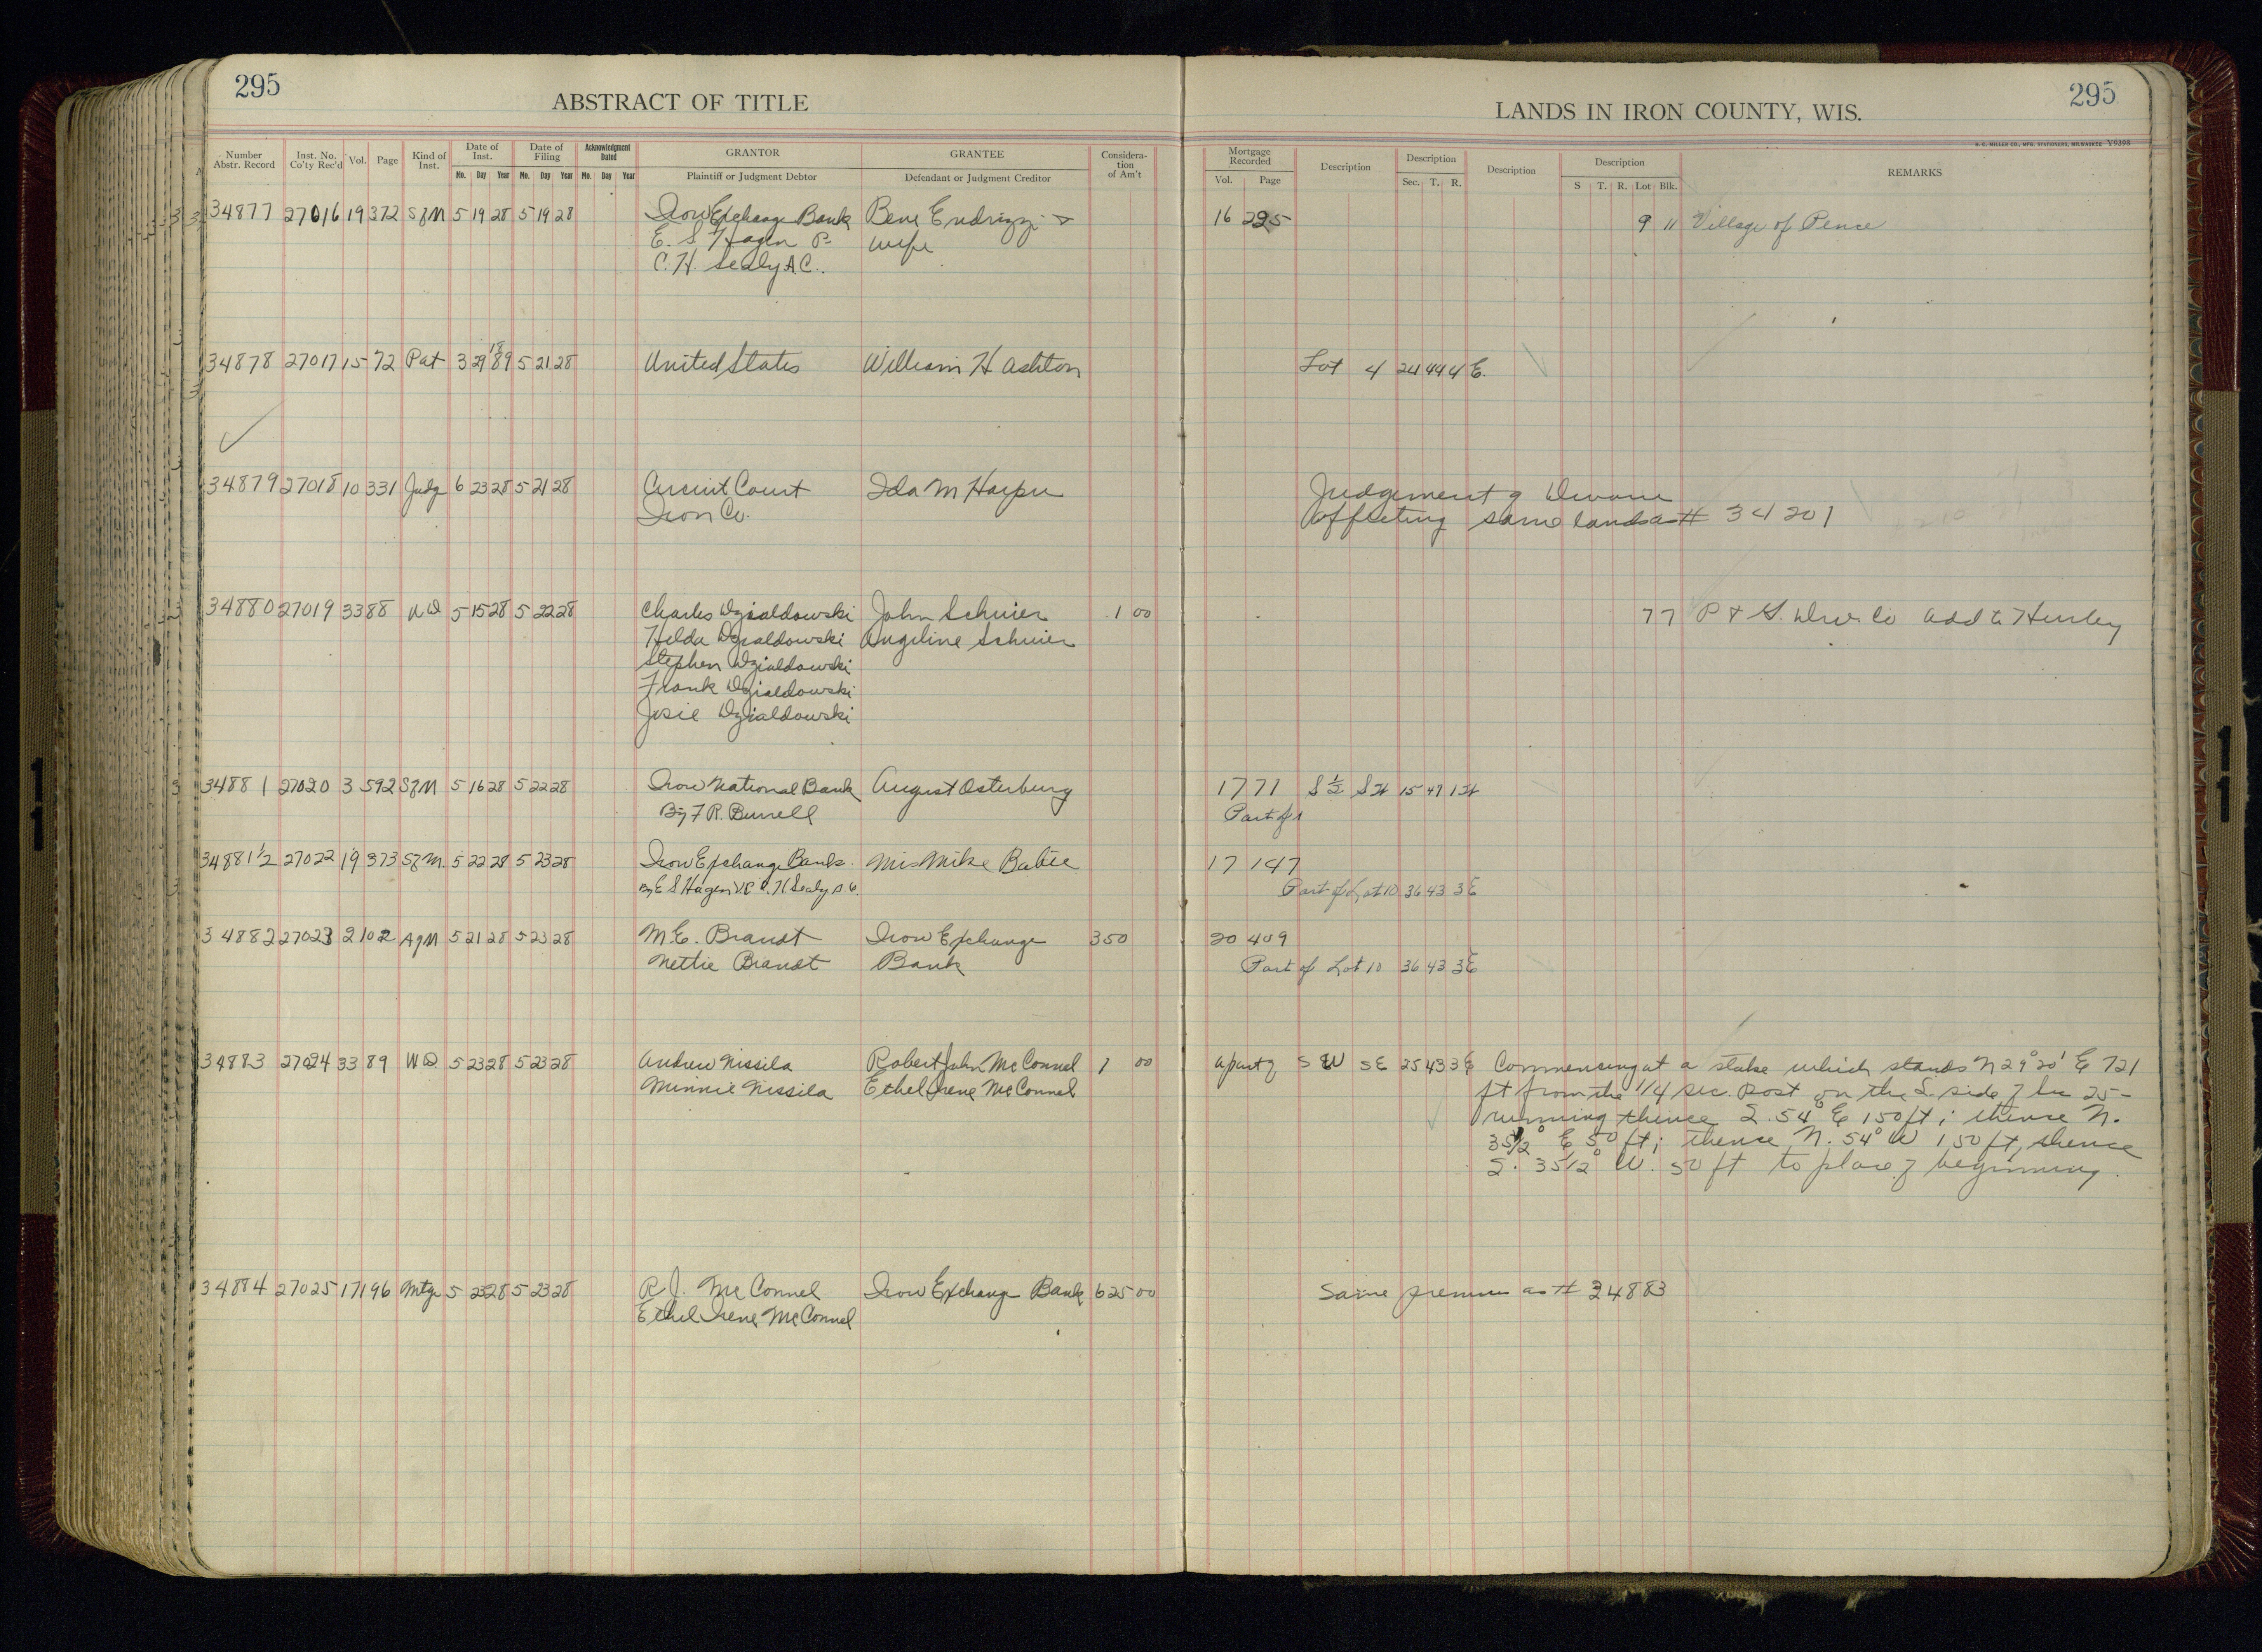 295
ABSTRACT OF TITLE
Number Abstr. Record Inst. No. Co'ty Rec'd Vol. Page Kind of Inst. Date of Inst. Mo. Day Year Date of Filing Mo. Day Year Acknowledgment Dated Mo. Day Year GRANTOR Plaintiff or Judgment Debtor GRANTEE Defendant or Judgment Creditor Consideration of Am't
34877 27016 19 372 SfM 5 19 28 5 19 28 Iron Exchange Bank Bene Endrizzi &
E. S. Hagen P. wife
C. H. Sealy A.C.
34878 27017 15 72 Pat 3 29 1889 5 21 28 United States William H Ashton
34879 27018 10 331 Judg 6 23 28 5 21 28 Circuit Court Ida M Harper
Iron Co.
34880 27019 33 88 WD 5 15 28 5 22 28 Charles Dzialdowski John Schuier 1 00
Hilda Dzialdowski Angeline Schuier
Stephen Dzialdowski
Frank Dzialdowski
Josie Dzialdowski
34881 27020 3 592 SfM 5 16 28 5 22 28 Iron National Bank August Osterburg
By F R. Burrell
34881 1/2 27022 19 373 SfM. 5 22 28 5 23 28 Iron Exchange Bank Mrs Mike Babic
By E S Hagen V.P C. H Sealy A. C.
34882 27023 2 102 AfM 5 21 28 5 23 28 M. E. Brandt Iron Exchange 350
Nettie Brandt Bank
34883 27024 33 89 WD 5 23 28 5 23 28 Andrew Nissila Robert John McConnel 1 00
Minnie Nissila Ethel Irene McConnel
34884 27025 17 196 Mtge 5 23 28 5 23 28 R J. McConnel Iron Exchange Bank 625 00
Ethel Irene McConnel
295
LANDS IN IRON COUNTY, WIS.
H. C. MILLER CO., MFG. STATIONERS, MILWAUKEE V9398
Mortgage Recorded Vol. Page Description Description Sec. T. R. Description Description S T. R. Lot Blk. REMARKS
16 225 9 11 Village of Pence
Lot 4 24 44 4 E.
Judgement of Divorce
affecting same land as # 34201
7 7 P & G. Dev. Co Add to Hurley
17 71 S 1/2 SW 15 47 1 W
Part of
17 147
Part of Lot 10 36 43 3E
20 409
Part of Lot 10 36 43 3E
a part of SW SE 25 43 3 E Commencing at a stake which stands N 29° 20' E 721
ft from the 1/4 sec. post on the S. side of Sec 25-
running thence S. 54° E 150 ft; thence N.
35 1/2° E 50 ft; thence N. 54° W 150 ft, thence
S. 35 1/2° W. 50 ft to place of beginning.
Same premises as # 34883